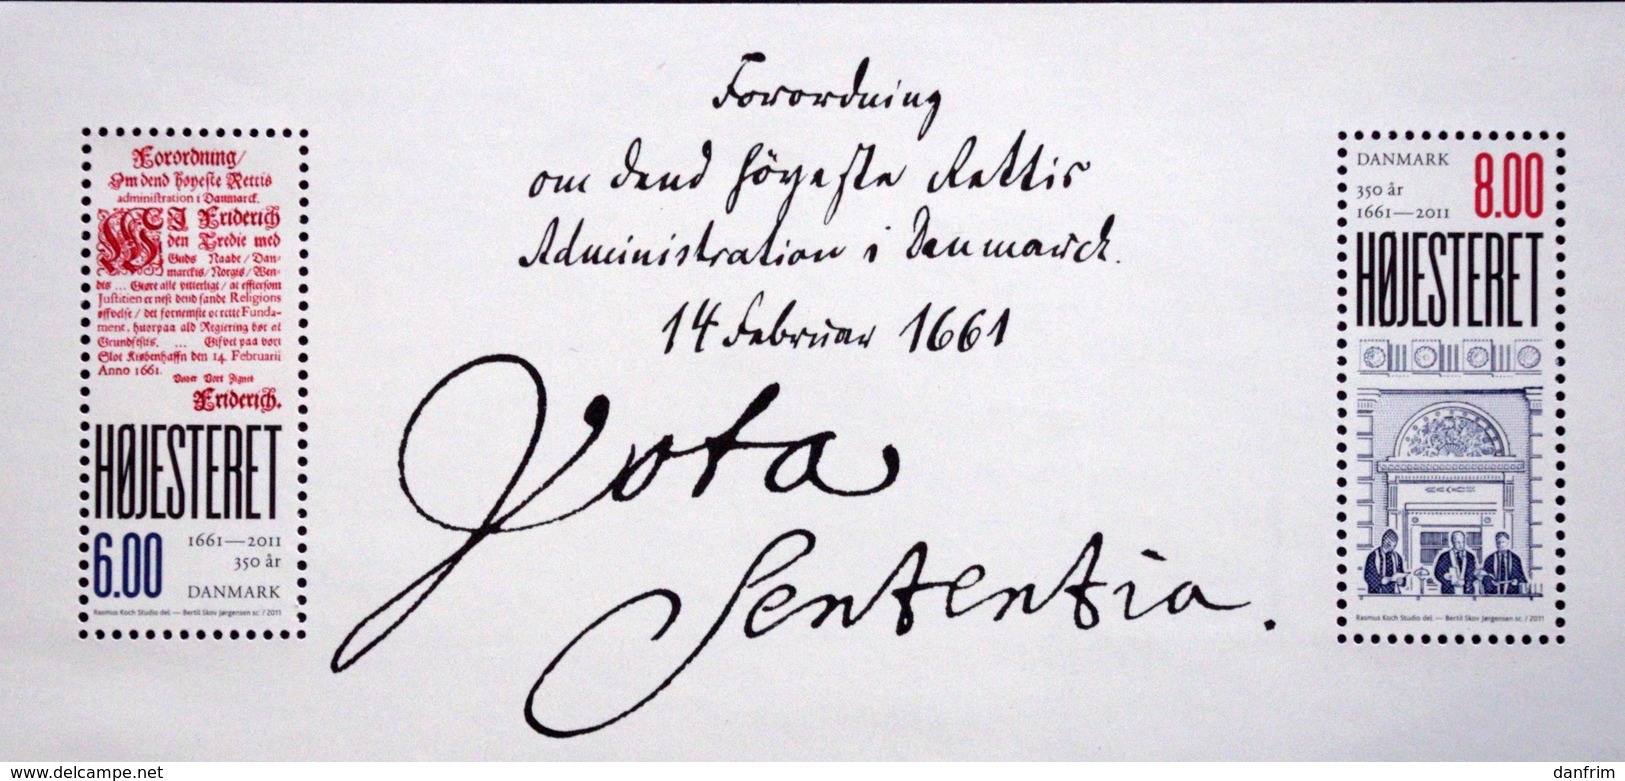 Forordning
om dend höyeste Rettis
Administration i Danmarck.
14 Februar 1661
Vota
Sententia.
Forordning/
Om dend höyeste Rettis
administration i Danmarck.
WJ Friderich
den Tredie med
Guds Naade/ Dan-
marckis/ Norgis/ Wen-
dis ... Giøre alle vitterligt/ at efftersom
Justitien er nest dend sande Religions
øffvelse/ det fornemste oc rette Funda-
ment, huorpaa ald Regiering bør at
Grundfestis. ... Gifvet paa vort
Slot Kiøbenhaffn den 14. Februarii
Anno 1661.
Under Vort Zignet
Friderich.
HØJESTERET
6.00
1661—2011
350 år
DANMARK
Rasmus Koch Studio del. — Bertil Skov Jørgensen sc. / 2011
DANMARK
8.00
350 år
1661—2011
HØJESTERET
Rasmus Koch Studio del. — Bertil Skov Jørgensen sc. / 2011
delcampe.net
danfrim